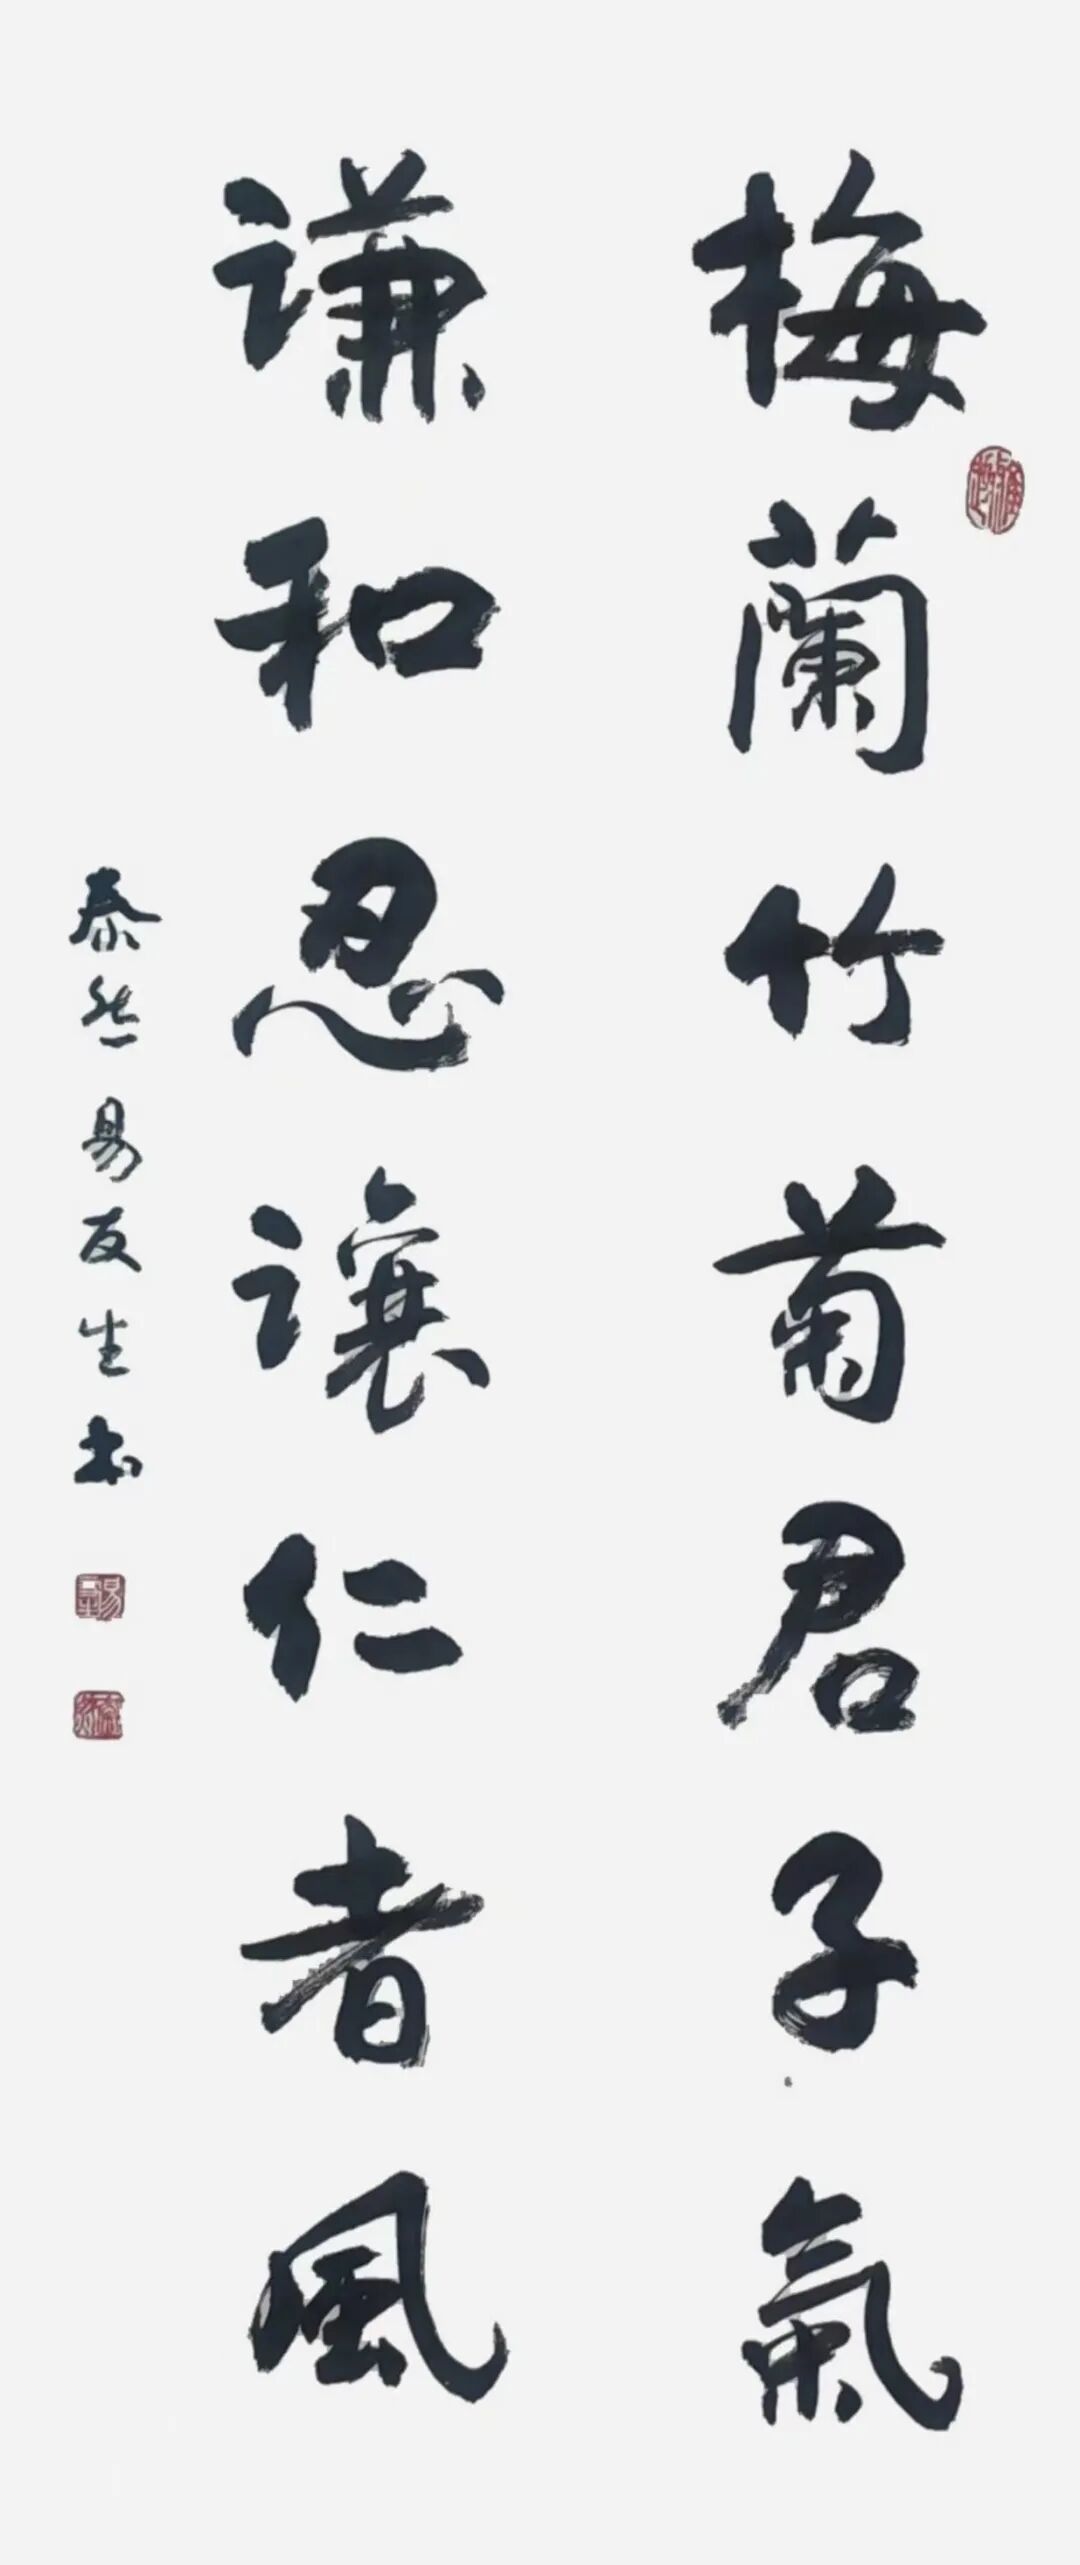 梅蘭竹菊君子氣
謙和忍讓仁者風
泰然易友生书